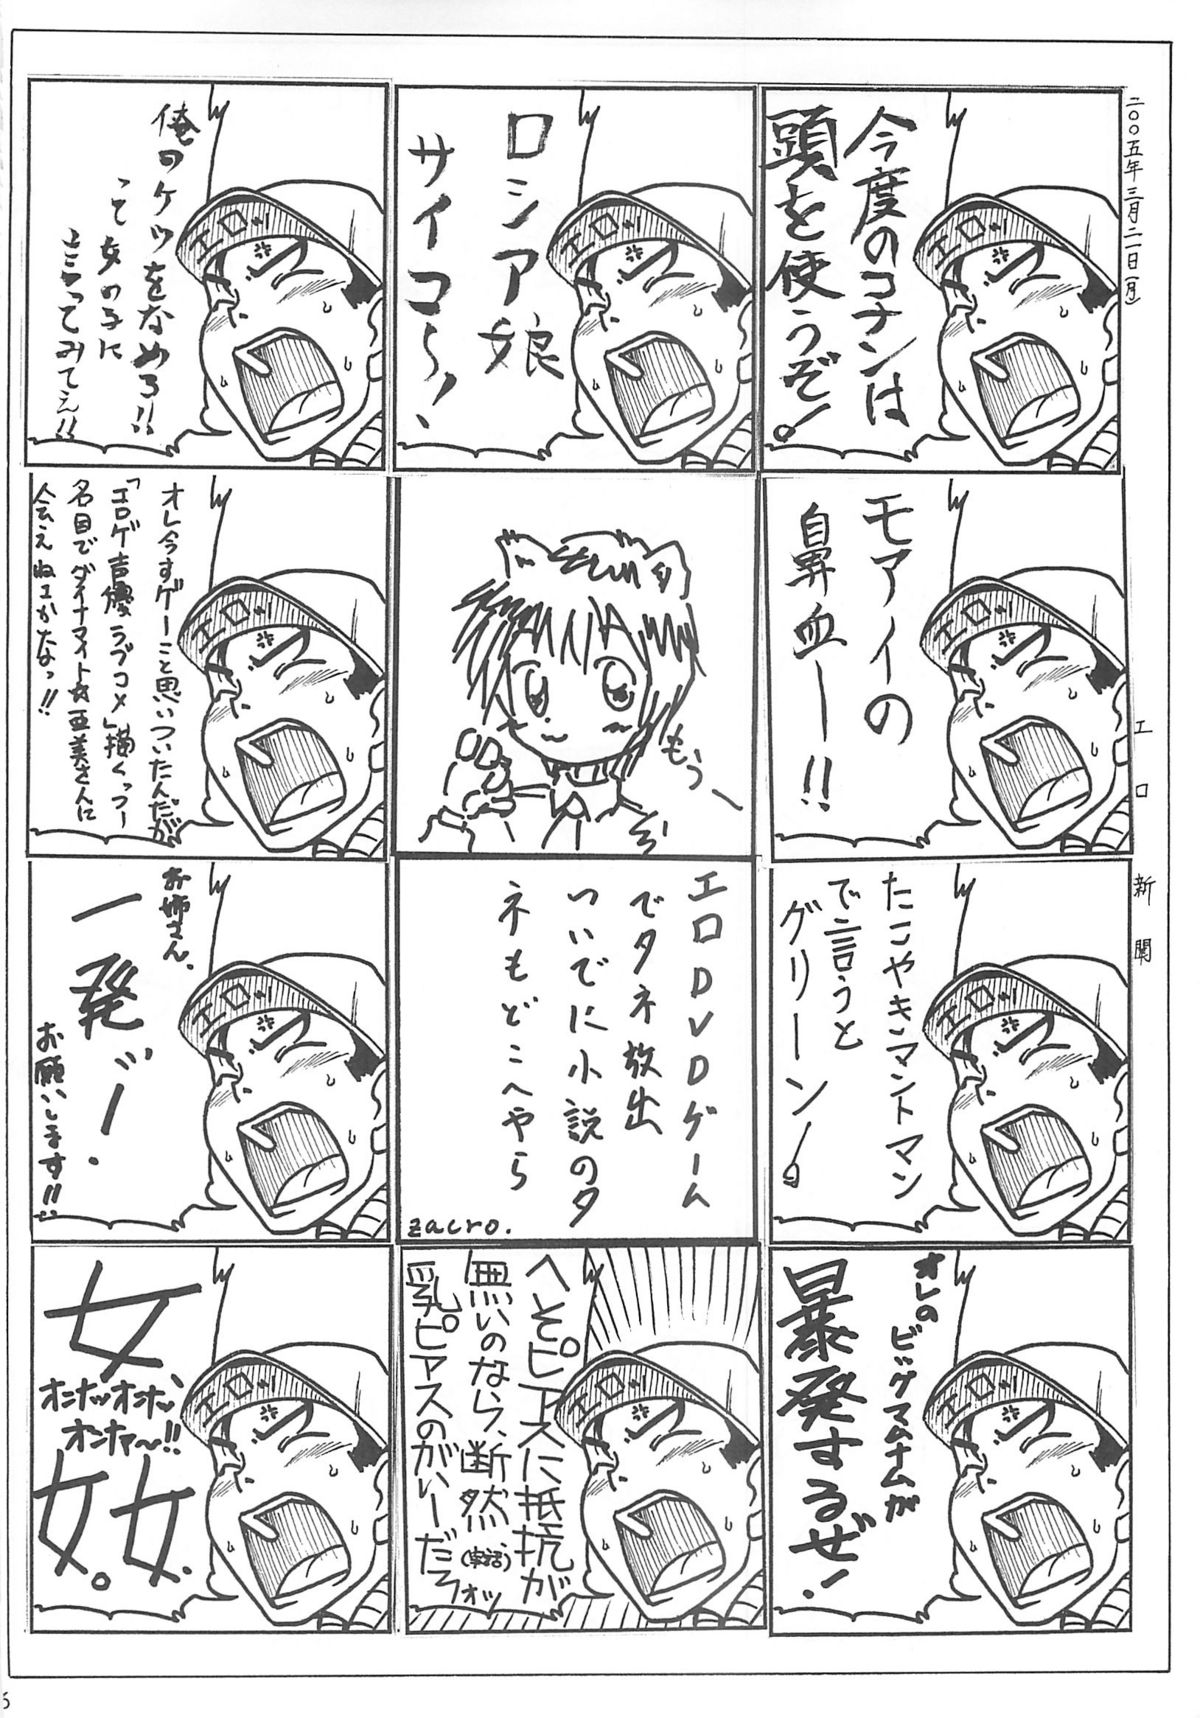 二〇〇五年三月二一日(月)
エロ新聞
今度のコナンは
頭を使うぞ!
エロッ!
ロシア娘
サイコ〜!
エロッ!
俺のケツをなめろ!!
って女の子に
言ってみてぇ!!
エロッ!
モアイの
鼻血ー!!
エロッ!
もうー
オレ今すげーこと思いついたんだが
「エロゲ声優ラブコメ」描くっつー
名目でダイナマイト亜美さんに
会えねエかなっ!!
エロッ!
たこやきマントマン
で言うと
グリーン!
エロッ!
エロDVDゲーム
でタネ放出
ついでに小説のタ
ネもどこへやら
zacro.
お姉さん、
一発ッ!
お願いします!!
エロッ!
オレの
ビッグマムナムが
暴発するぜ!
エロッ!
へそピアスに抵抗が
無いのなら、断然(実話)
乳ピアスのがいーだろォッ
エロッ!
女、
オンナッオンナッ
オンナァ〜!!
女女。
エロッ!